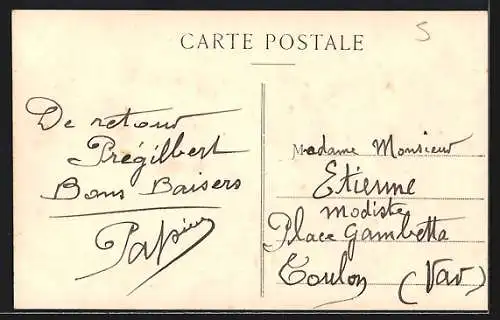 CARTE POSTALE
5
De retour
Prégilbert
Bons Baisers
Madame Monsieur
Etienne
Modiste
Place Gambetta
Toulon (Var)